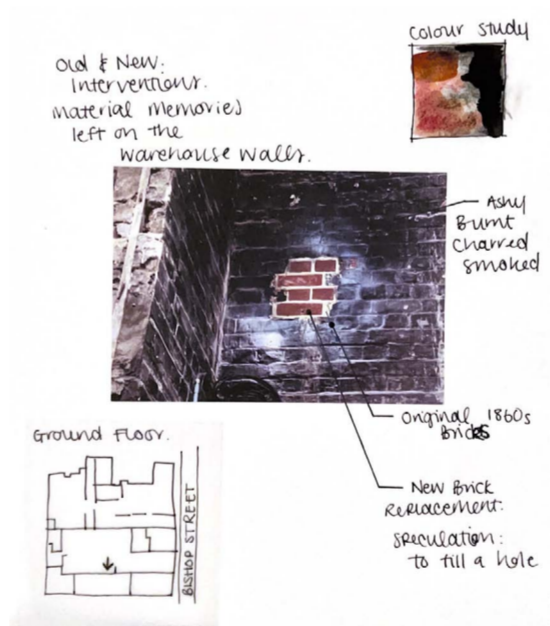 Colour Study
Old & New:
Interventions.
Material Memories
left on the
Warehouse Walls.
Ashy
Burnt
Charred
Smoked
Original 1860s
Bricks
New Brick
Replacement:
Speculation:
to fill a hole
Ground Floor.
BISHOP STREET